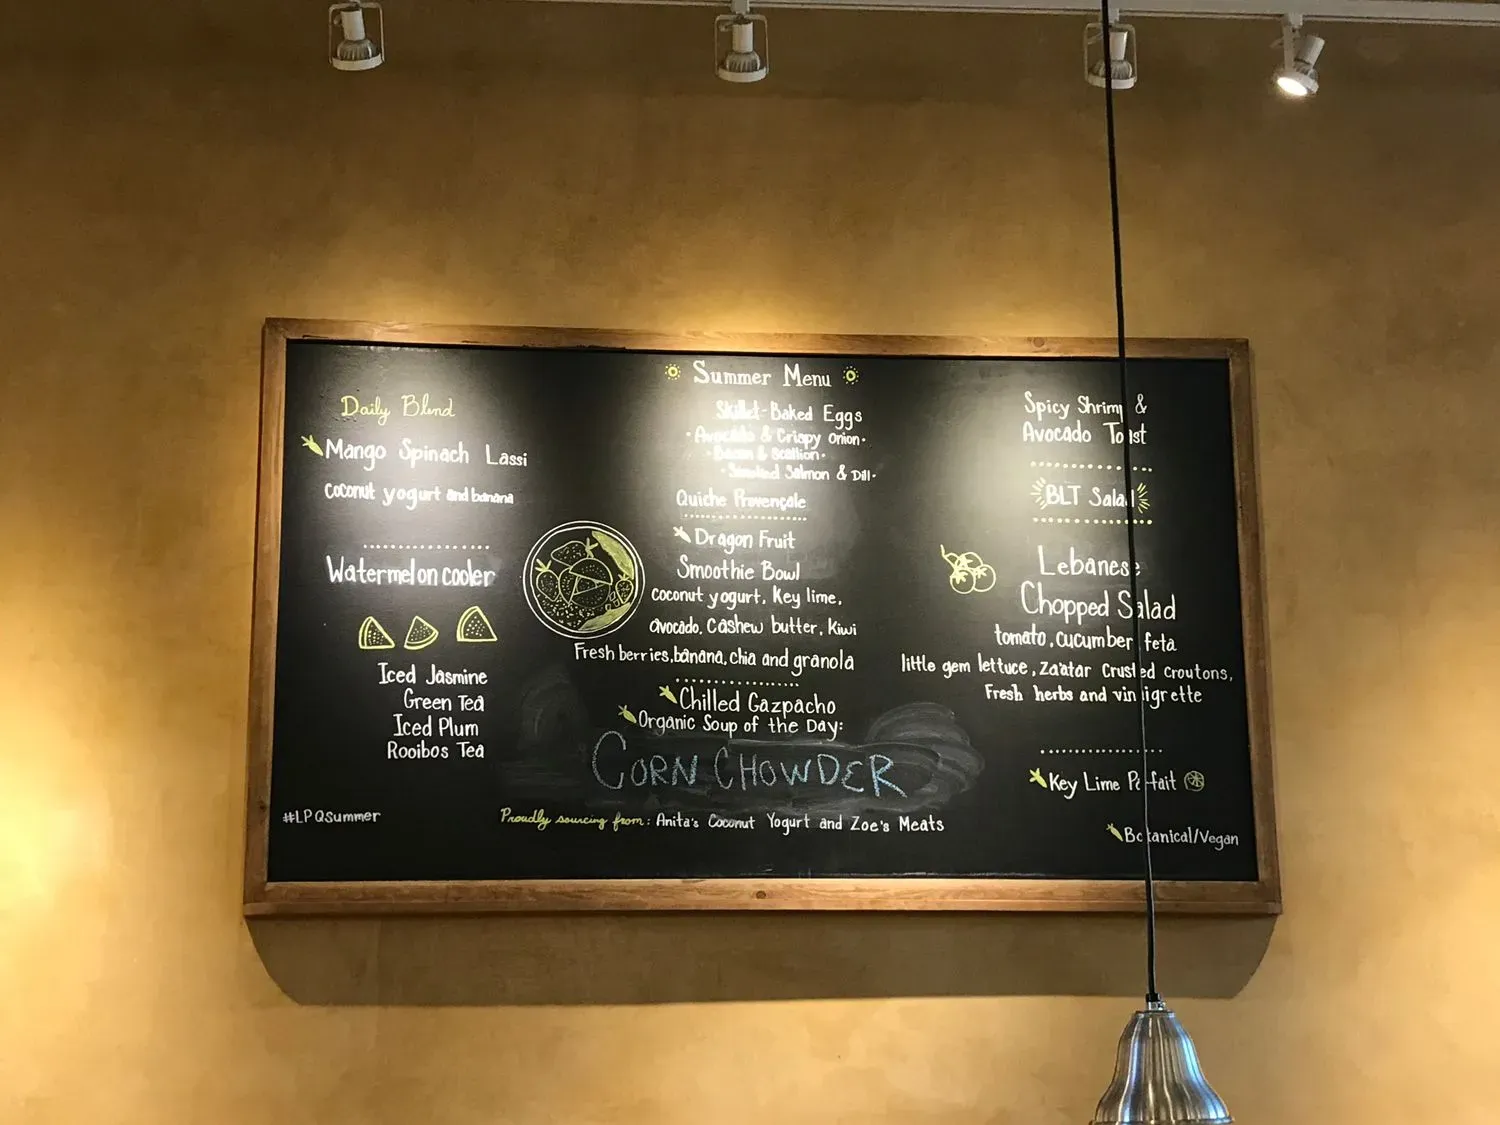 Daily Blend
Mango Spinach Lassi
coconut yogurt and banana
Watermelon cooler
Iced Jasmine
Green Tea
Iced Plum
Rooibos Tea
#LPQSummer
Summer Menu
Skillet-Baked Eggs
• Avocado & Crispy Onion •
• Bacon & Scallion •
• Smoked Salmon & Dill •
Quiche Provençale
Dragon Fruit
Smoothie Bowl
coconut yogurt, Key lime,
avocado, cashew butter, Kiwi
Fresh berries, banana, chia and granola
Chilled Gazpacho
Organic Soup of the Day:
CORN CHOWDER
Proudly sourcing from: Anita's Coconut Yogurt and Zoe's Meats
Spicy Shrimp &
Avocado Toast
BLT Salad
Lebanese
Chopped Salad
tomato, cucumber, feta
little gem lettuce, za'atar crusted croutons,
Fresh herbs and vinaigrette
Key Lime Parfait
Botanical/Vegan